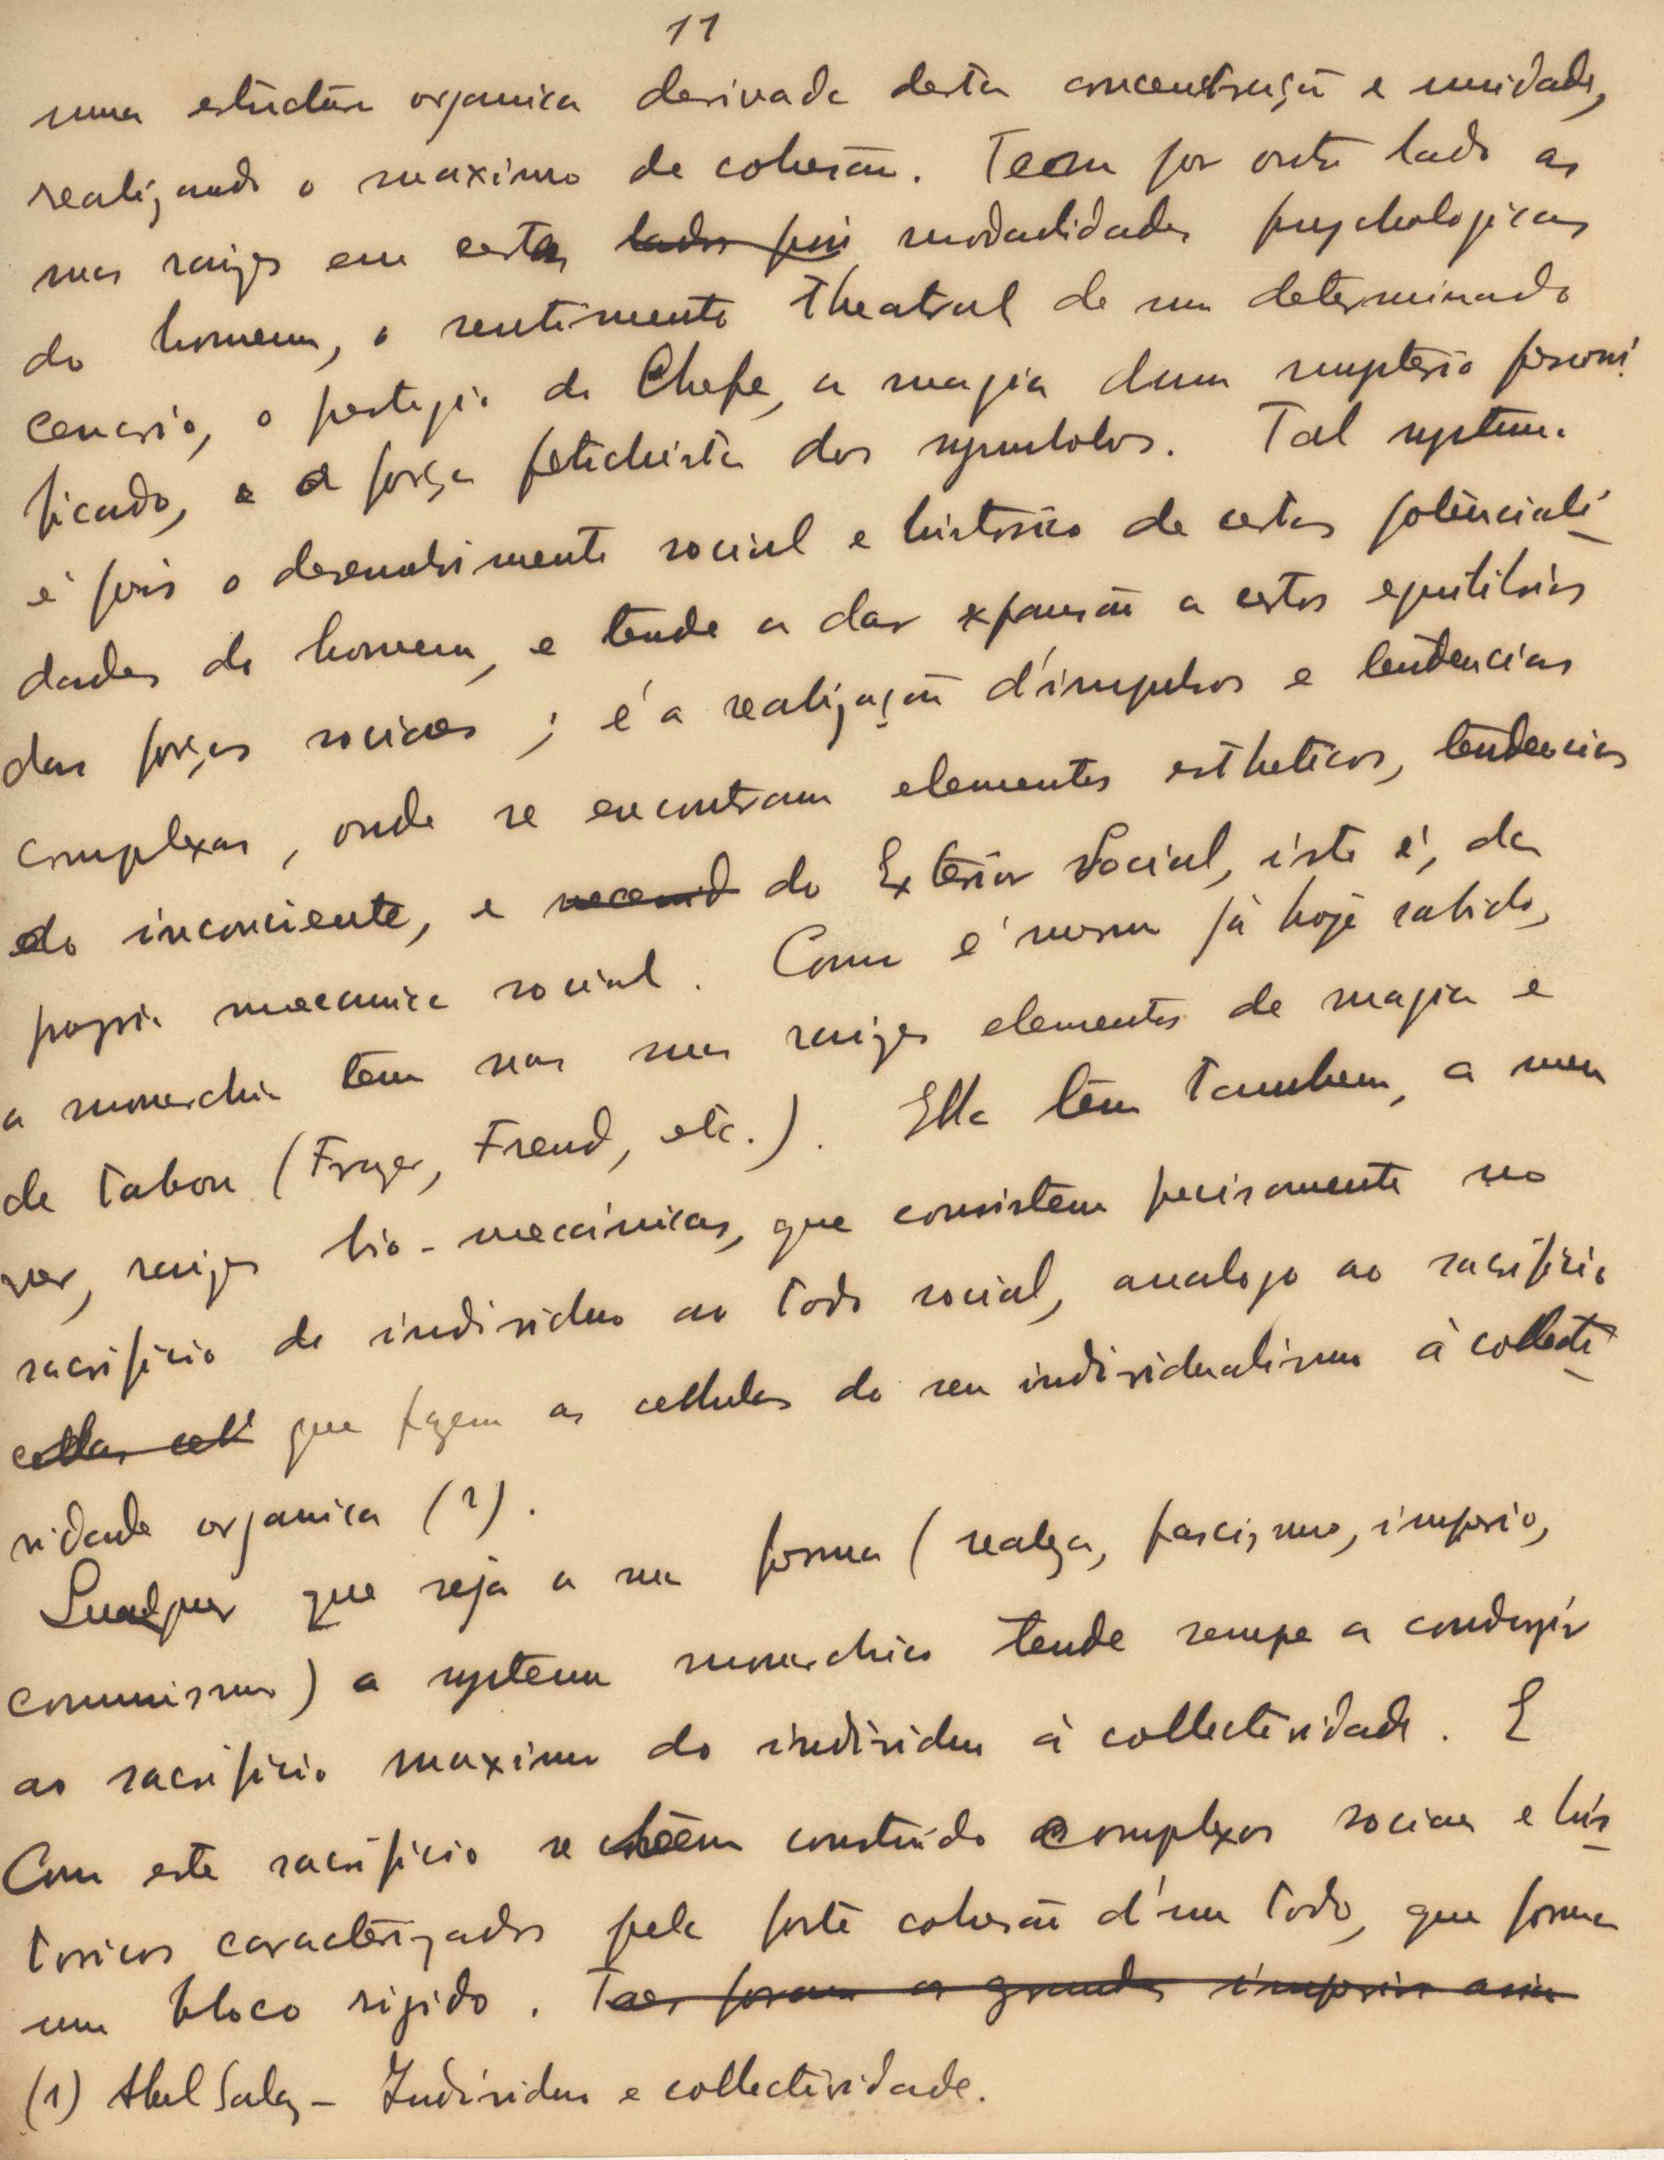 11
uma estructura organica derivada desta concentração e unidade,
realizando o maximo de cohesão. Teem por outro lado as
suas raizes em certas lados psi modalidades psychologicas
do homem, o sentimento theatral de um determinado
cenario, o prestigio do Chefe, a magia dum mysterio personi
ficado, e a força fetichista dos symbolos. Tal systema
é pois o desenvolvimento social e historico de certas potenciali-
dades do homem, e tende a dar expansão a certos equilibrios
das forças sociaes; é a realização d'impulsos e tendencias
complexas, onde se encontram elementos estheticos, tendencias
do inconciente, e necessid do Exterior Social, isto é, da
propria mecanica social. Como é mesmo já hoje sabido,
a monarchia tem nas suas raizes elementos de magia e
de tabou (Frazer, Freud, etc.). Ella tem tambem, a meu
ver, raizes bio-mecanicas, que consistem precisamente no
sacrificio do individuo ao todo social, analogo ao sacrificio
que fazem as cellulas do seu individualismo à collecti-
vidade organica (1).
Qualquer que seja a sua forma (realeza, fascismo, imperio,
communismo) o systema monarchico tende sempre a conduzir
ao sacrificio maximo do individuo à collectividade. E
Com este sacrificio se teem construido complexos sociaes e his-
toricos caracterizados pela forte cohesão d'um todo, que forma
um bloco rigido. Taes foram os grandes imperios asia
(1) Abel Salaz – Individuo e collectividade.